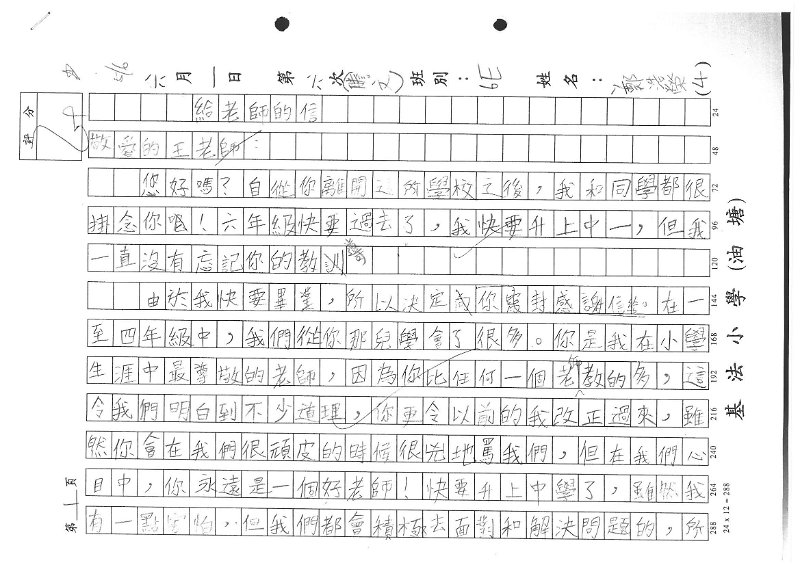 六月一日 第六次 班別：6E 姓名：鄭 (4)
評分
給老師的信
24
敬愛的王老師：
48
您好嗎？自從你離開這所學校之後，我和同學都很
72
掛念你呢！六年級快要過去了，我快要升上中一，但我
96
一直沒有忘記你的教訓
120
由於我快要畢業，所以決定或你寫封感謝信。在一
144
至四年級中，我們從你那兒學會了很多。你是我在小學
168
生涯中最尊敬的老師，因為你比任何一個老師教的多，這
192
令我們明白到不少道理，你更令以前的我改正過來，雖
216
然你會在我們很頑皮的時候很兇地罵我們，但在我們心
240
目中，你永遠是一個好老師！快要升上中學了，雖然我
264
有一點害怕，但我們都會積極去面對和解決問題的，所
288
24 x 12 = 288
第1頁
基法小學(油塘)